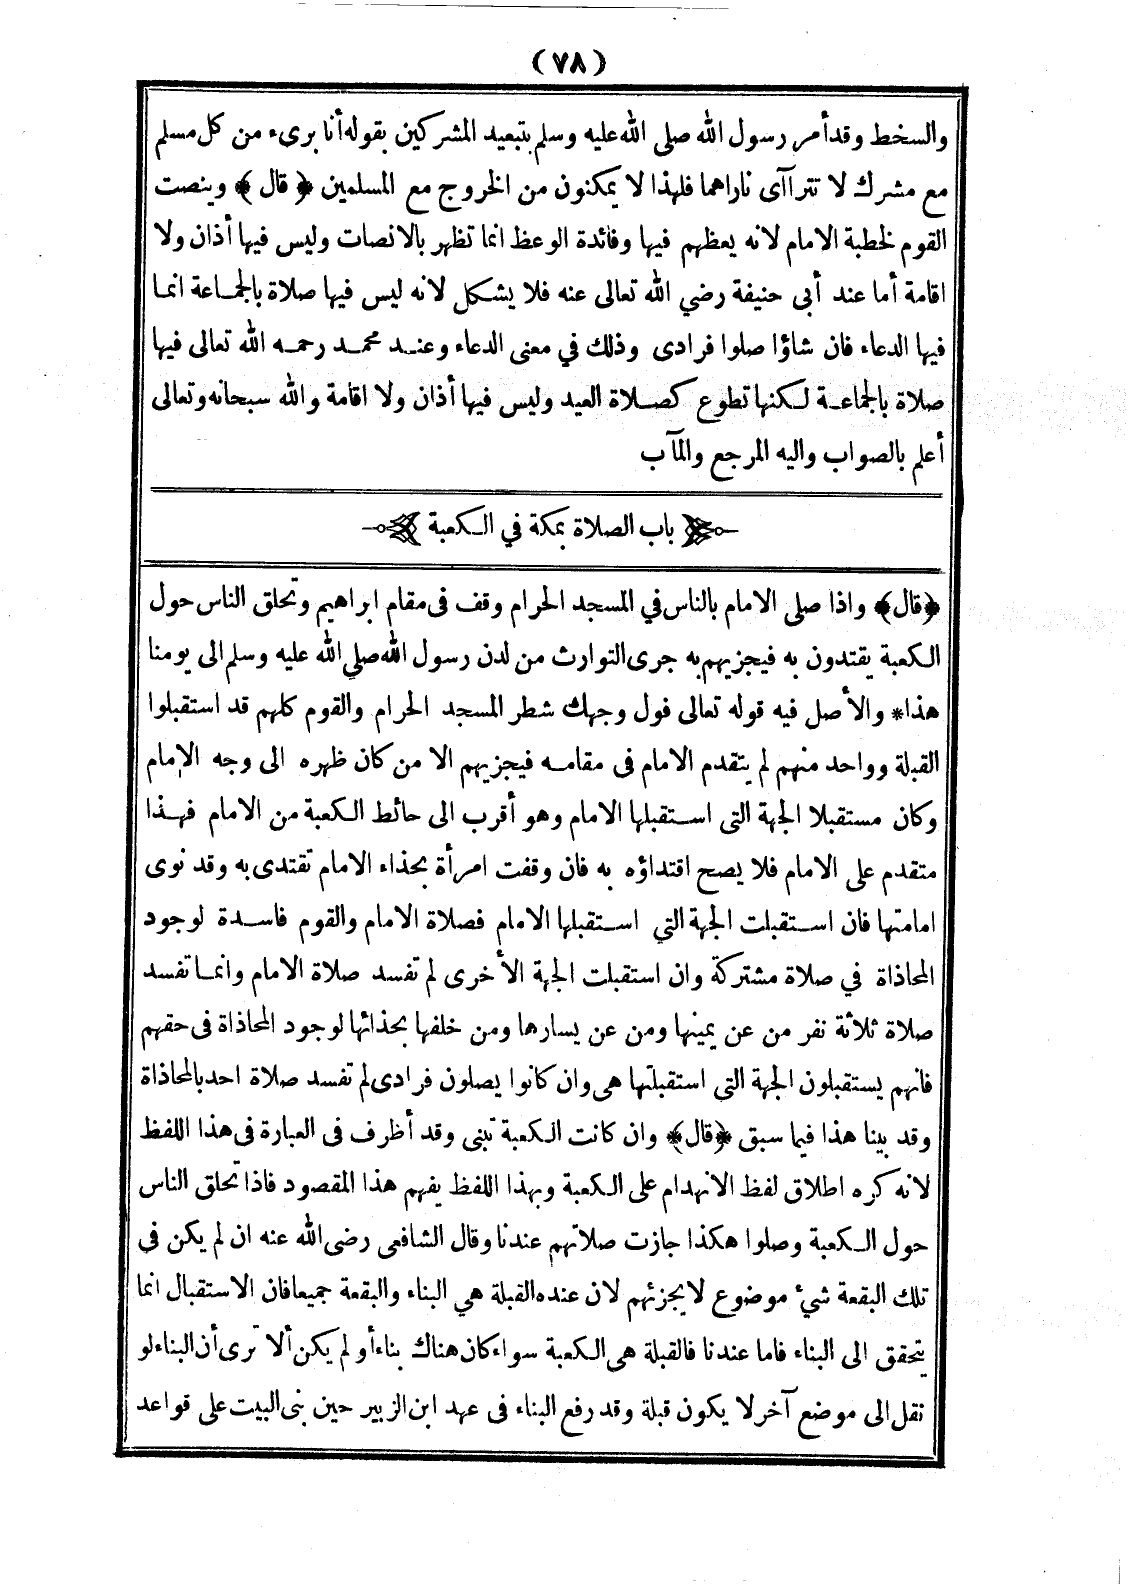 (٧٨)
والسخط وقد أمر رسول الله صلى الله عليه وسلم بتبعيد المشركين بقوله أنا برىء من كل مسلم
مع مشرك لا تتراآى ناراهما فلهذا لا يمكنون من الخروج مع المسلمين ﴿ قال ﴾ وينصت
القوم لخطبة الامام لانه يعظهم فيها وفائدة الوعظ انما تظهر بالانصات وليس فيها أذان ولا
اقامة أما عند أبى حنيفة رضي الله تعالى عنه فلا يشكل لانه ليس فيها صلاة بالجماعة انما
فيها الدعاء فان شاؤا صلوا فرادى وذلك في معنى الدعاء وعند محمد رحمه الله تعالى فيها
صلاة بالجماعة لكنها تطوع كصلاة العيد وليس فيها أذان ولا اقامة والله سبحانه وتعالى
أعلم بالصواب واليه المرجع والمآب
باب الصلاة بمكة في الكعبة
﴿قال﴾ واذا صلى الامام بالناس في المسجد الحرام وقف فى مقام ابراهيم وتحلق الناس حول
الكعبة يقتدون به فيجزيهم به جرى التوارث من لدن رسول الله صلي الله عليه وسلم الى يومنا
هذا* والأصل فيه قوله تعالى فول وجهك شطر المسجد الحرام والقوم كلهم قد استقبلوا
القبلة وواحد منهم لم يتقدم الامام فى مقامه فيجزيهم الا من كان ظهره الى وجه الإمام
وكان مستقبلا الجهة التى استقبلها الامام وهو أقرب الى حائط الكعبة من الامام فهذا
متقدم على الامام فلا يصح اقتداؤه به فان وقفت امرأة بحذاء الامام تقتدى به وقد نوى
امامتها فان استقبلت الجهة التي استقبلها الامام فصلاة الامام والقوم فاسدة لوجود
المحاذاة في صلاة مشتركة وان استقبلت الجهة الأخرى لم تفسد صلاة الامام وانما تفسد
صلاة ثلاثة نفر من عن يمينها ومن عن يسارها ومن خلفها بحذائها لوجود المحاذاة فى حقهم
فانهم يستقبلون الجهة التى استقبلتها هى وان كانوا يصلون فرادى لم تفسد صلاة احد بالمحاذاة
وقد بينا هذا فيما سبق ﴿قال﴾ وان كانت الكعبة تبنى وقد أظرف فى العبارة فى هذا اللفظ
لانه كره اطلاق لفظ الانهدام على الكعبة وبهذا اللفظ يفهم هذا المقصود فاذا تحلق الناس
حول الكعبة وصلوا هكذا جازت صلاتهم عندنا وقال الشافعى رضى الله عنه ان لم يكن في
تلك البقعة شيء موضوع لا يجزئهم لان عنده القبلة هي البناء والبقعة جميعا فان الاستقبال انما
يتحقق الى البناء فاما عندنا فالقبلة هى الكعبة سواء كان هناك بناء أو لم يكن ألا ترى أن البناء لو
نقل الى موضع آخر لا يكون قبلة وقد رفع البناء فى عهد ابن الزبير حين بنى البيت على قواعد